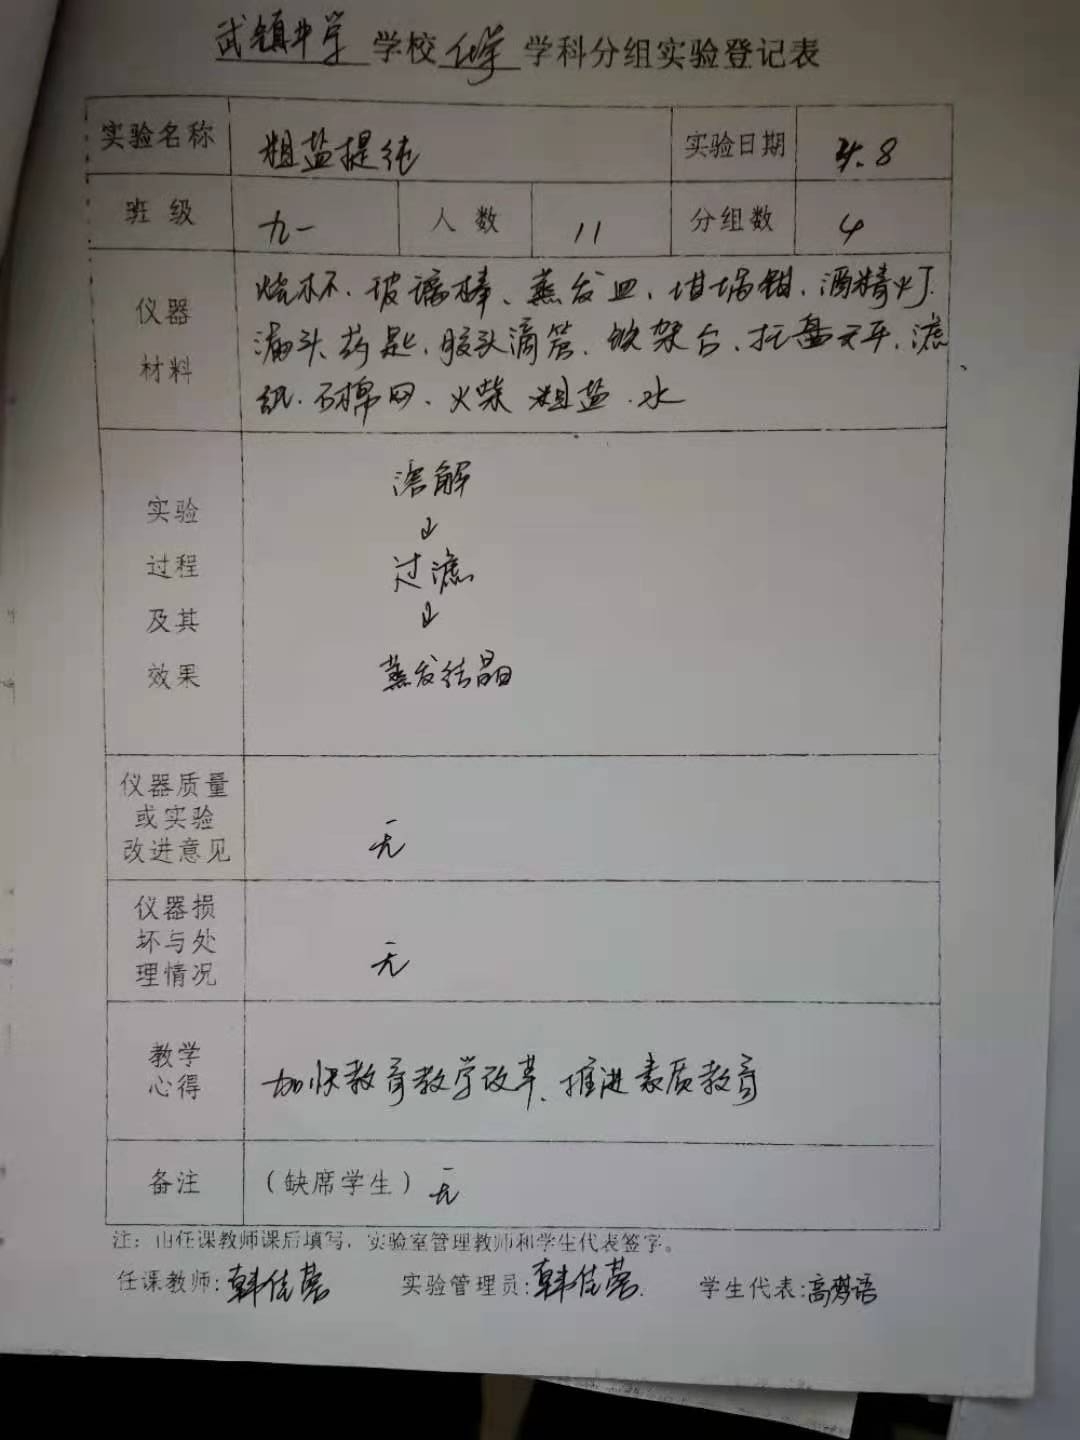 武镇中学 学校 化学 学科分组实验登记表
实验名称 粗盐提纯 实验日期 4.8
班级 九一 人数 11 分组数 4
仪器材料
烧杯、玻璃棒、蒸发皿、坩埚钳、酒精灯、
漏头、药匙、胶头滴管、铁架台、托盘天平、滤
纸、石棉网、火柴 粗盐、水
实验
过程
及其
效果
溶解
↓
过滤
↓
蒸发结晶
仪器质量
或实验
改进意见
无
仪器损
坏与处
理情况
无
教学
心得
加快教育教学改革、推进素质教育
备注 (缺席学生) 无
注: 由任课教师课后填写, 实验室管理教师和学生代表签字。
任课教师: 韩佳蓉 实验管理员: 韩佳蓉 学生代表: 高梦语